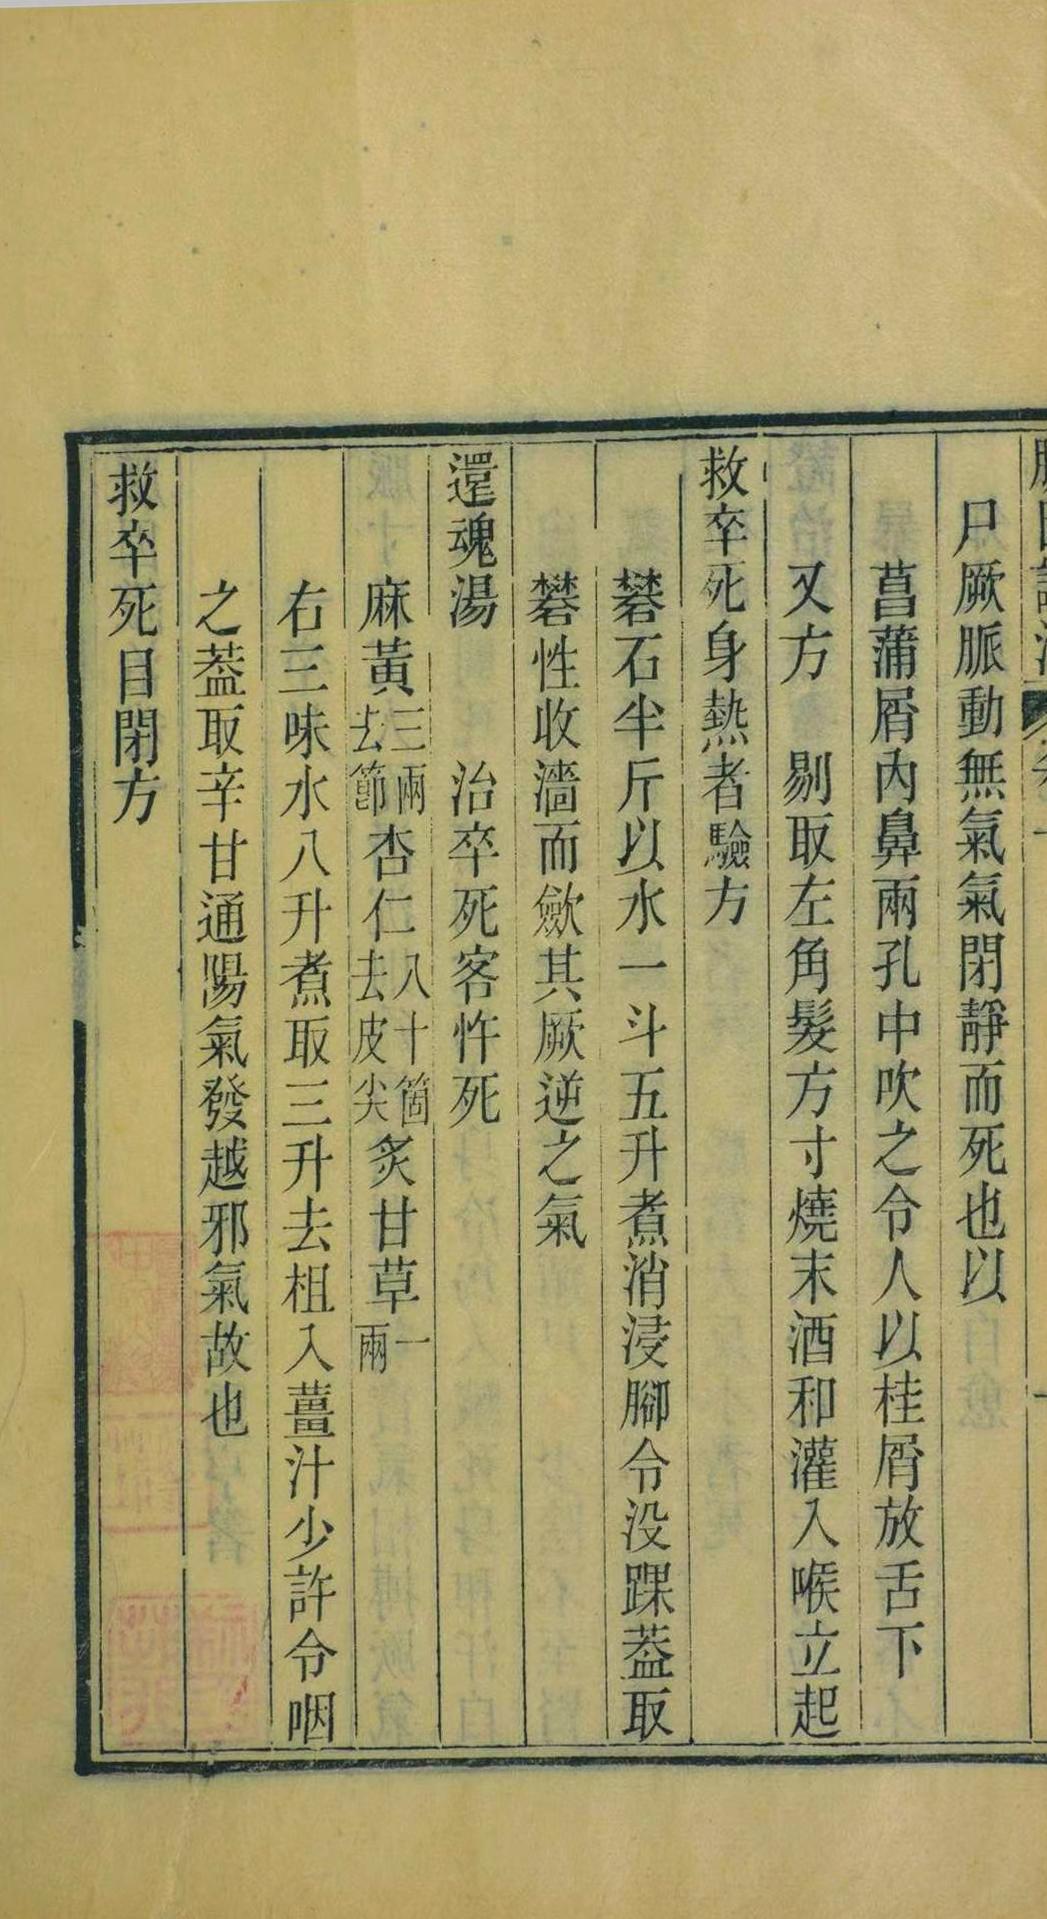 尸厥脈動無氣氣閉靜而死也以
菖蒲屑內鼻兩孔中吹之令人以桂屑放舌下
又方　剔取左角髮方寸燒末酒和灌入喉立起
救卒死身熱者驗方
礬石半斤以水一斗五升煮消浸腳令没踝葢取
礬性收濇而歛其厥逆之氣
還魂湯　治卒死客忤死
麻黃三兩去節杏仁八十箇去皮尖炙甘草一兩
右三味水八升煮取三升去柤入薑汁少許令咽
之葢取辛甘通陽氣發越邪氣故也
救卒死目閉方